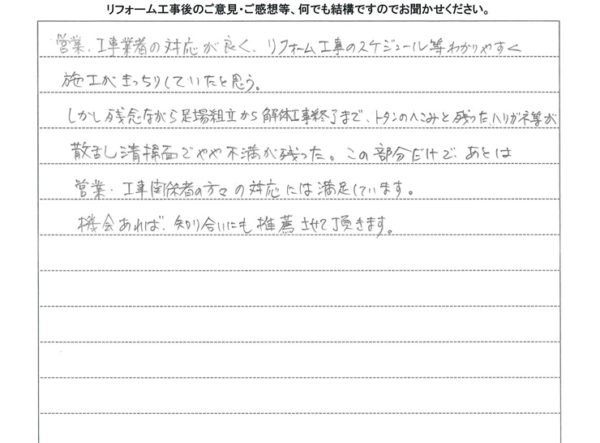 リフォーム工事後のご意見・ご感想等、何でも結構ですのでお聞かせください。
営業、工事業者の対応が良く、リフォーム工事のスケジュール等わかりやすく
施工がきっちりしていたと思う。
しかし残念ながら足場組立から解体工事終了まで、トタンのへこみと残ったハリガネ等が
散乱し清掃面でやや不満が残った。この部分だけで、あとは
営業・工事関係者の方々の対応には満足しています。
機会あれば、知り合いにも推薦させて頂きます。